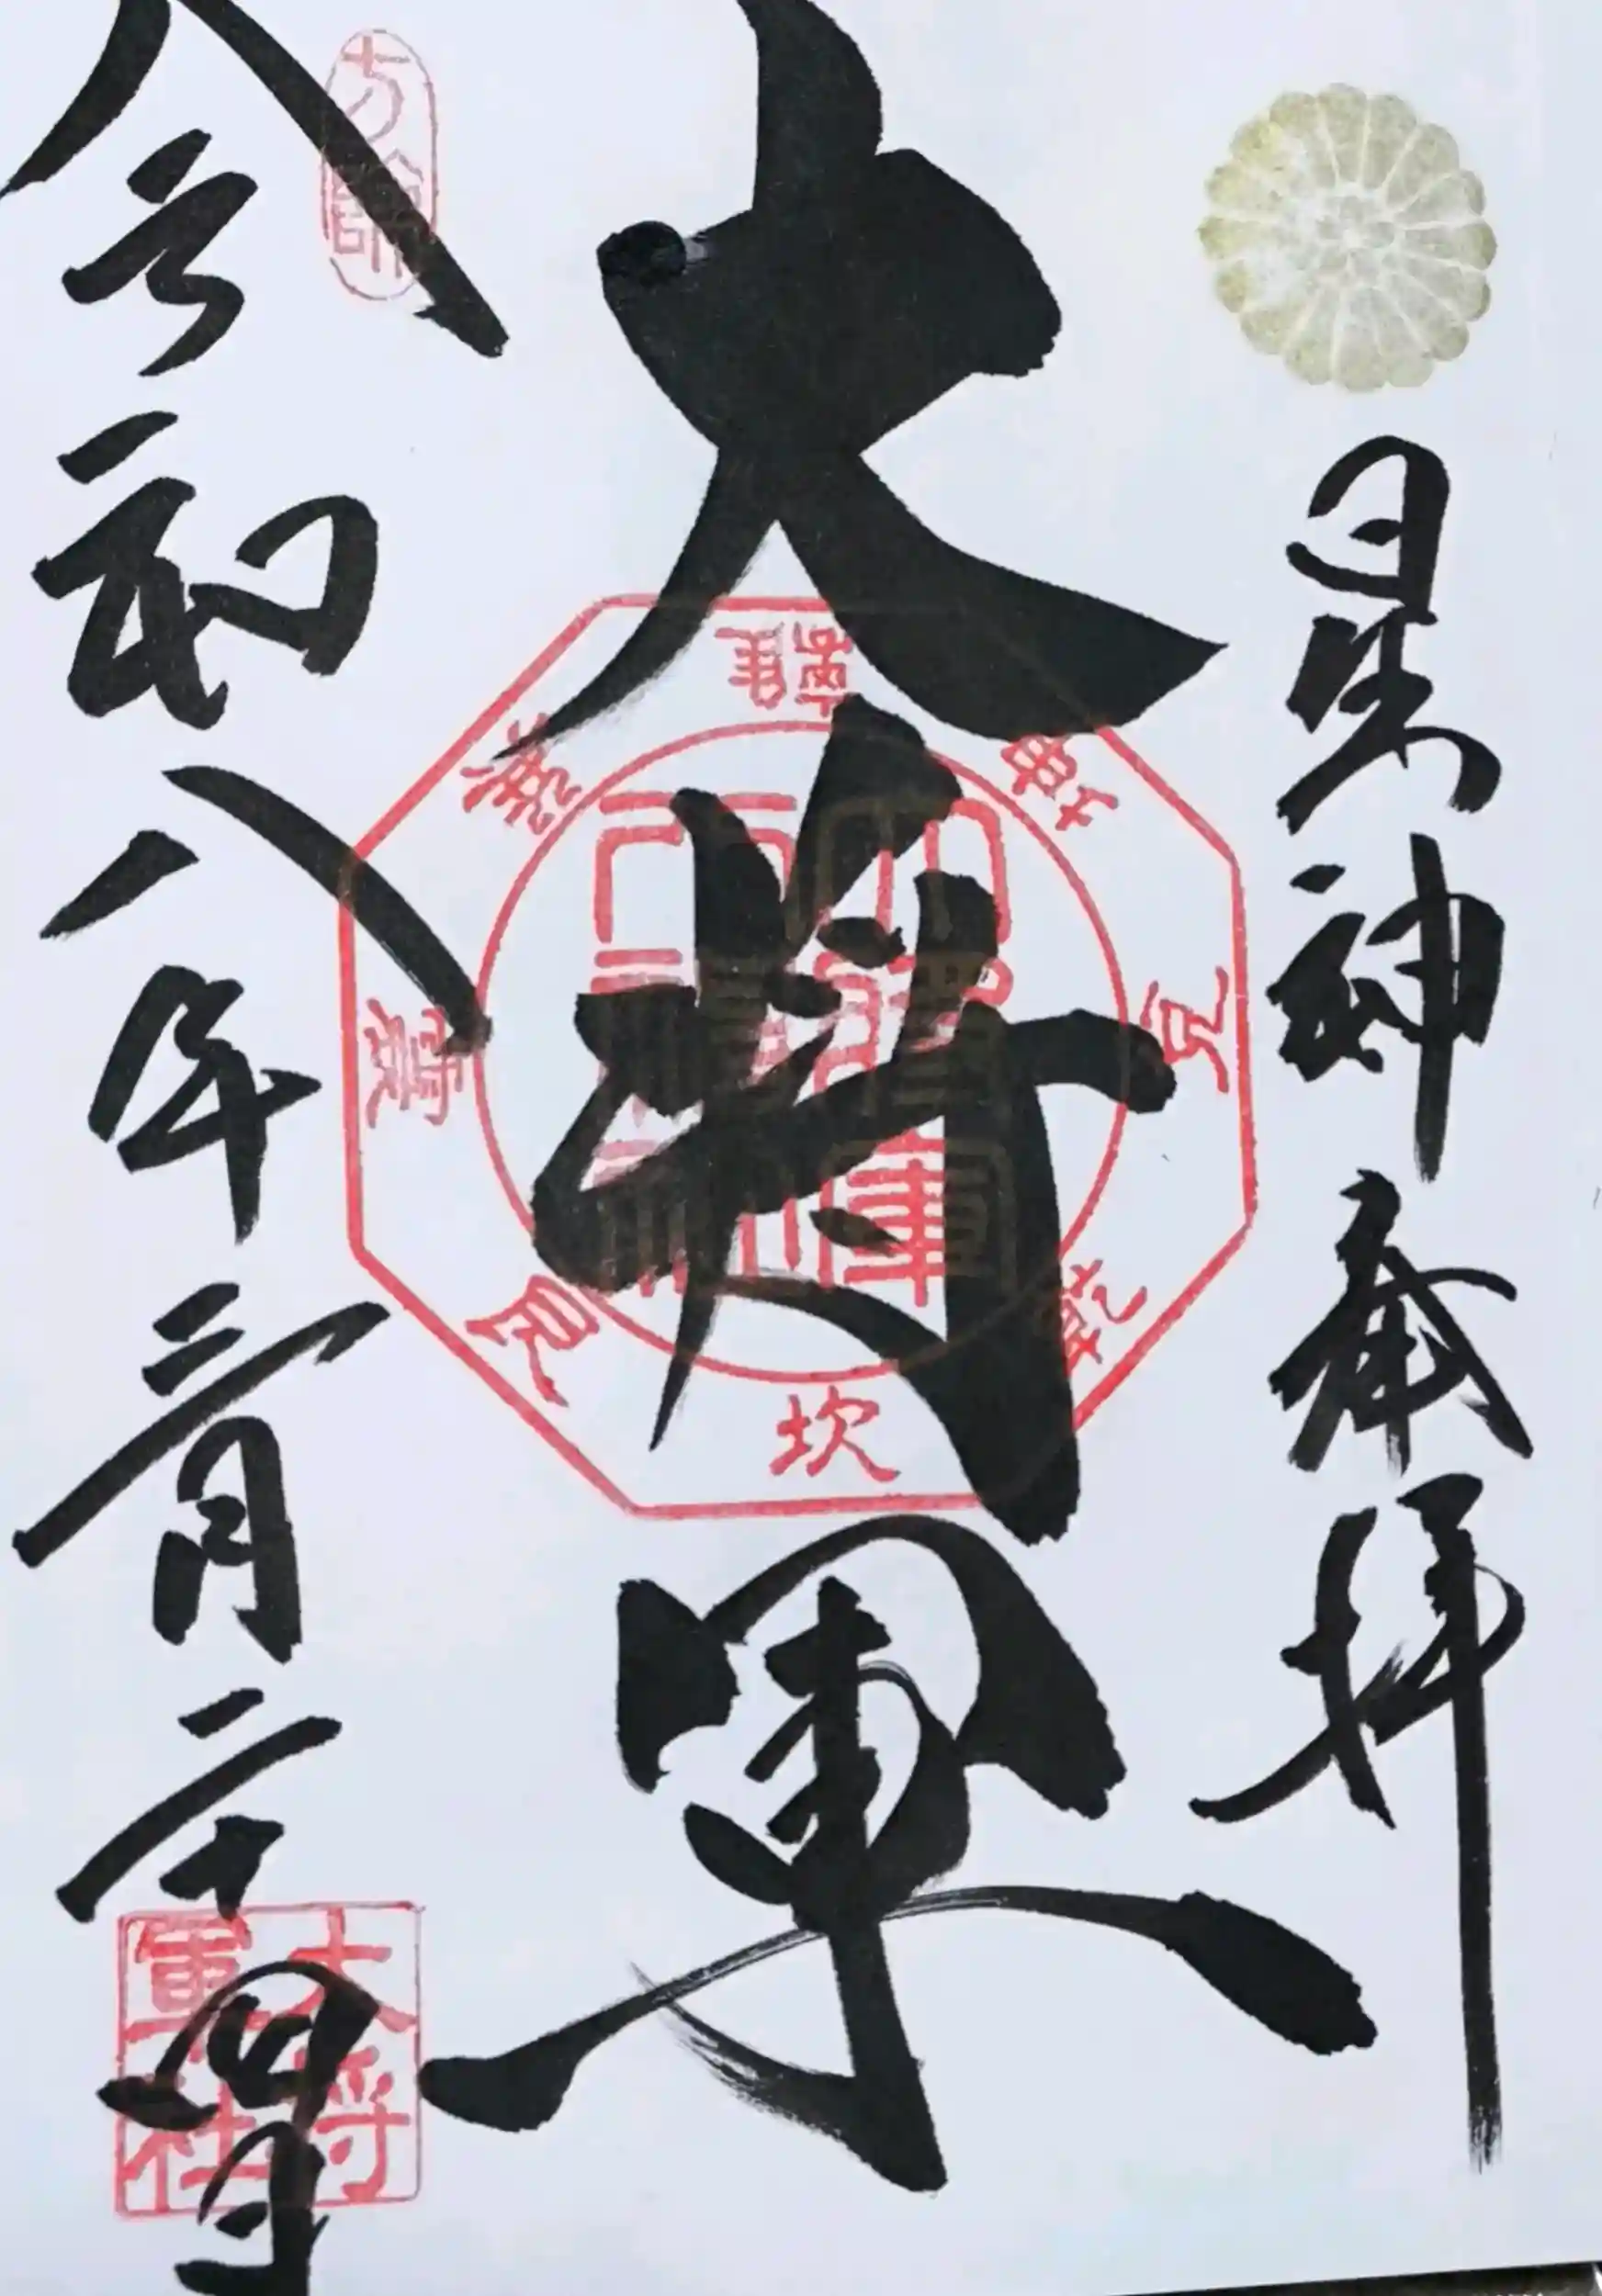 星神 奉拝
大将軍
令和八年二月二十四日
方除
大将軍社
坎
艮
乾
兌